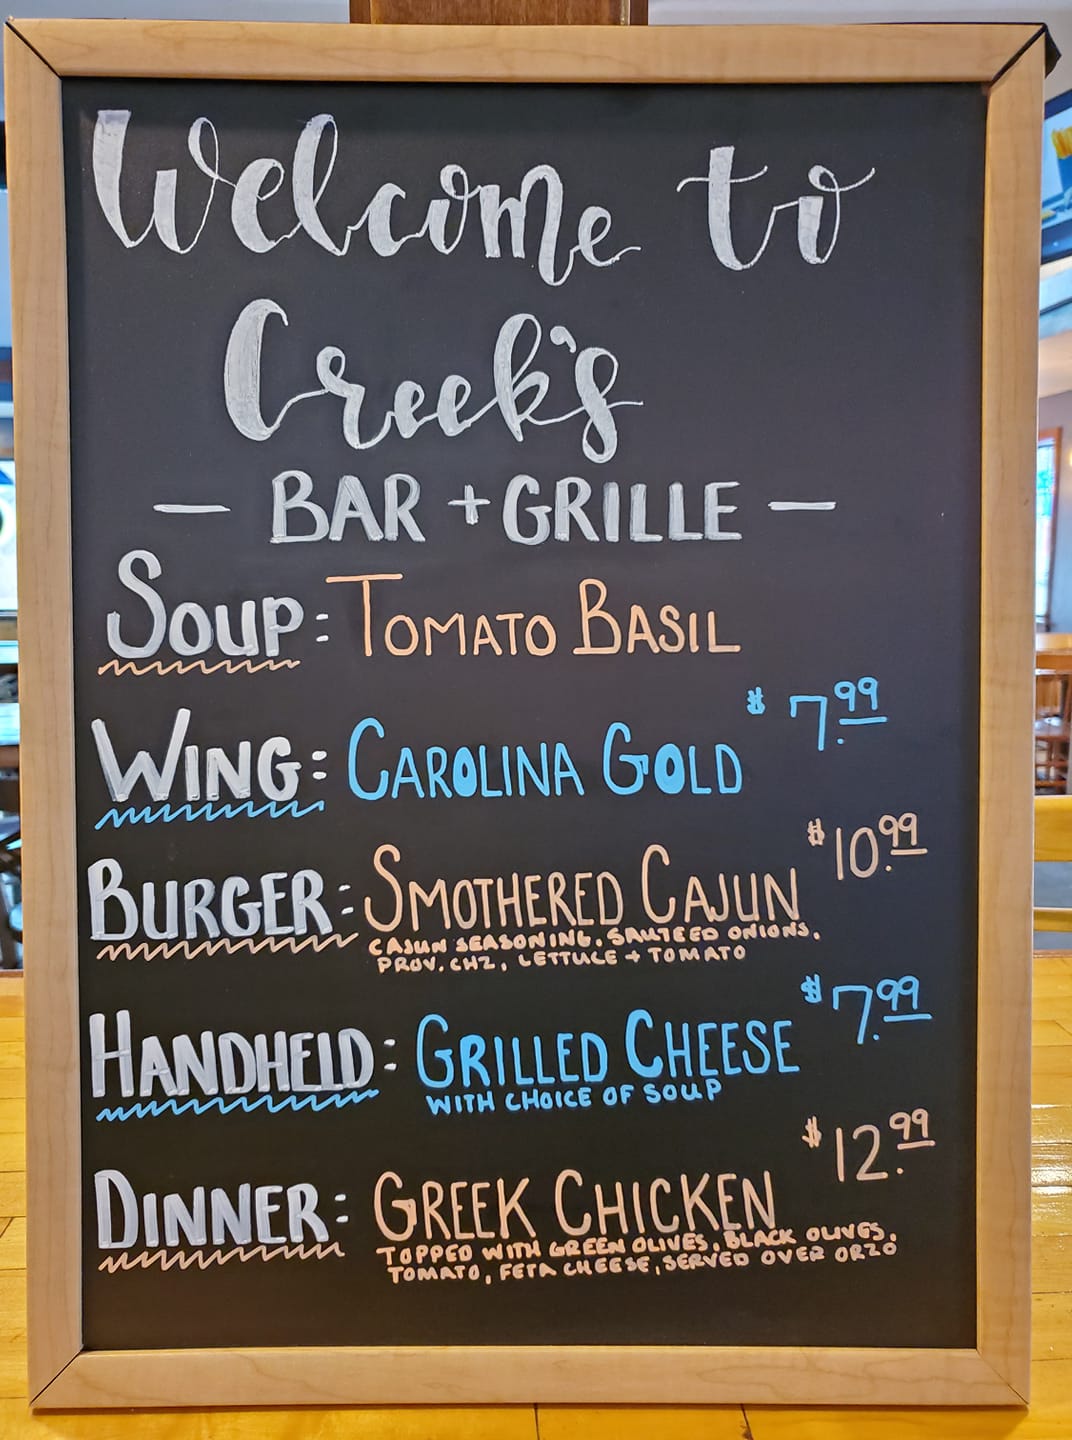 Welcome to
Creek's
— BAR + GRILLE —
SOUP: TOMATO BASIL
WING: CAROLINA GOLD $7.99
BURGER: SMOTHERED CAJUN $10.99
CAJUN SEASONING, SAUTEED ONIONS,
PROV. CHZ, LETTUCE + TOMATO
HANDHELD: GRILLED CHEESE $7.99
WITH CHOICE OF SOUP
DINNER: GREEK CHICKEN $12.99
TOPPED WITH GREEN OLIVES, BLACK OLIVES,
TOMATO, FETA CHEESE, SERVED OVER ORZO